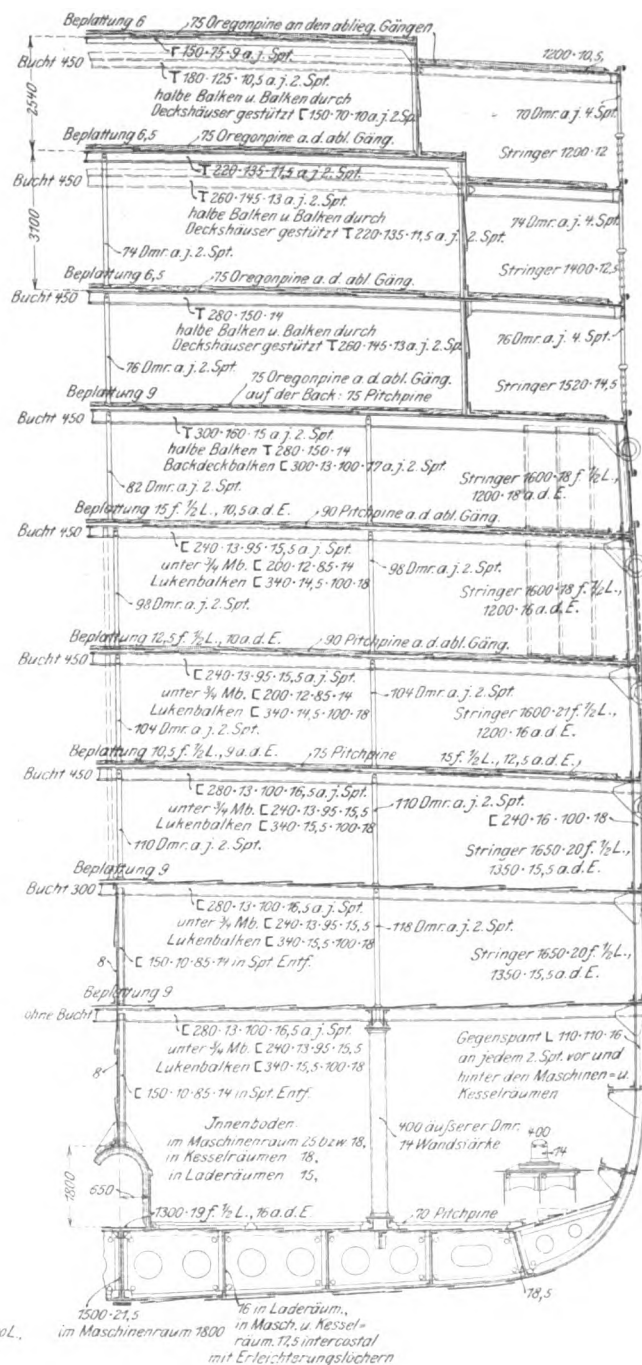 Beplattung 6
75 Oregonpine an den ablieg. Gängen
[150·75·9 a.j. Spt.
Bucht 450
T 180·125·10,5 a.j. 2. Spt.
halbe Balken u. Balken durch
Deckshäuser gestützt [150·70·10 a.j. 2. Sp
1200·10,5,
70 Dmr. a. j. 4. Spt.
Stringer 1200·12
2540
Beplattung 6,5
75 Oregonpine a.d. abl. Gäng.
T 220·135·11,5 a.j. 2. Spt.
Bucht 450
T 260·145·13 a.j. 2. Spt.
halbe Balken u. Balken durch
Deckshäuser gestützt T 220·135·11,5 a.j. 2. Spt.
74 Dmr. a. j. 4. Spt.
Stringer 1400·12,5
3100
74 Dmr. a. j. 2. Spt.
Beplattung 6,5
75 Oregonpine a.d. abl. Gäng.
Bucht 450
T 280·150·14
halbe Balken u. Balken durch
Deckshäuser gestützt T 260·145·13 a.j. 2. Spt.
76 Dmr. a. j. 4. Spt.
Stringer 1520·14,5
76 Dmr. a. j. 2. Spt.
Beplattung 9
75 Oregonpine a.d. abl. Gäng.
auf der Back: 75 Pitchpine
Bucht 450
T 300·160·15 a.j. 2. Spt.
halbe Balken T 280·150·14
Backdeckbalken [300·13·100·17 a.j. 2. Spt.
82 Dmr. a. j. 2. Spt.
Stringer 1600·18 f. ½ L.,
1200·18 a.d.E.
Beplattung 15 f. ½ L., 10,5 a.d.E.
90 Pitchpine a.d. abl. Gäng.
Bucht 450
[240·13·95·15,5 a.j. Spt.
unter ¾ Mb. [200·12·85·14
Lukenbalken [340·14,5·100·18
98 Dmr. a. j. 2. Spt.
98 Dmr. a. j. 2. Spt.
Stringer 1600·18 f. ½ L.,
1200·16 a.d.E.
Beplattung 12,5 f. ½ L., 10 a.d.E.
90 Pitchpine a.d. abl. Gäng.
Bucht 450
[240·13·95·15,5 a.j. Spt.
unter ¾ Mb. [200·12·85·14
Lukenbalken [340·14,5·100·18
104 Dmr. a. j. 2. Spt.
104 Dmr. a. j. 2. Spt.
Stringer 1600·21 f. ½ L.,
1200·16 a.d.E.
Beplattung 10,5 f. ½ L., 9 a.d.E.
75 Pitchpine
15 f. ½ L., 12,5 a.d.E.,
Bucht 450
[280·13·100·16,5 a.j. Spt.
unter ¾ Mb. [240·13·95·15,5
Lukenbalken [340·15,5·100·18
110 Dmr. a. j. 2. Spt.
110 Dmr. a. j. 2. Spt.
[240·16·100·18
Stringer 1650·20 f. ½ L.,
1350·15,5 a.d.E.
Beplattung 9
Bucht 300
[280·13·100·16,5 a.j. Spt.
unter ¾ Mb. [240·13·95·15,5
Lukenbalken [340·15,5·100·18
118 Dmr. a. j. 2. Spt.
[150·10·85·14 in Spt. Entf.
8
Stringer 1650·20 f. ½ L.,
1350·15,5 a.d.E.
Beplattung 9
ohne Bucht
[280·13·100·16,5 a.j. Spt.
unter ¾ Mb. [240·13·95·15,5
Lukenbalken [340·15,5·100·18
8
[150·10·85·14 in Spt. Entf.
Gegenspant L 110·110·16
an jedem 2. Spt. vor und
hinter den Maschinen= u.
Kesselräumen
Jnnenboden
im Maschinenraum 25 bzw. 18,
in Kesselräumen 18,
in Laderäumen 15,
400 äußerer Dmr.
14 Wandstärke
400
14
1800
650
1300·19 f. ½ L., 16 a.d.E.
70 Pitchpine
18,5
1500·21,5
im Maschinenraum 1800
16 in Laderäum.,
in Masch. u. Kessel=
räum. 17,5 intercostal
mit Erleichterungslöchern